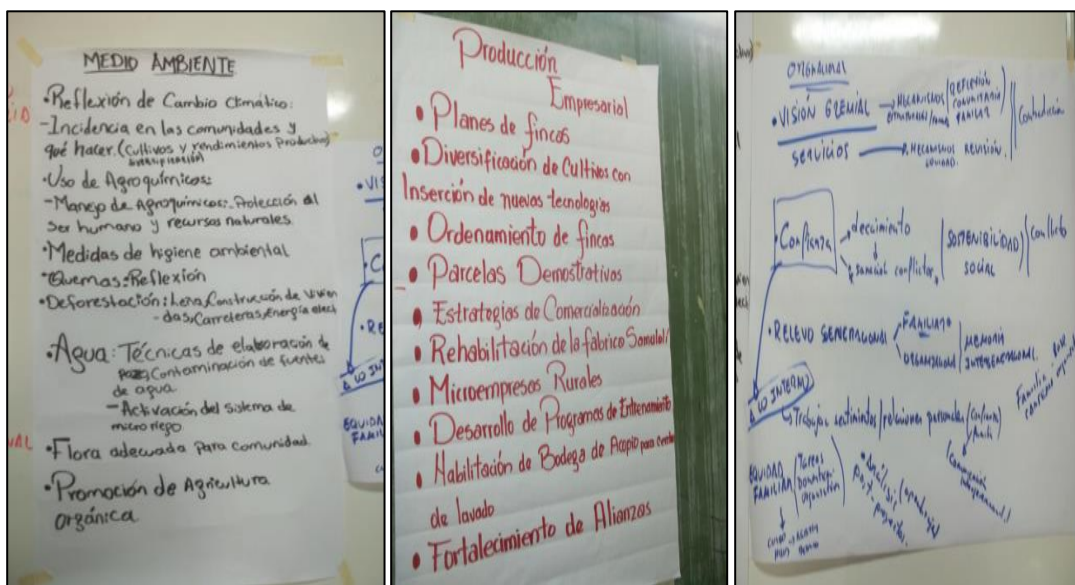 MEDIO AMBIENTE
•Reflexión de Cambio Climático:
-Incidencia en las comunidades y
qué hacer. (cultivos y rendimientos Productivo)
•Uso de Agroquímicos:
-Manejo de Agroquímicos:-Protección al
ser humano y recursos naturales.
•Medidas de higiene ambiental
•Quemas: Reflexión
•Deforestación: Leña, Construcción de Vivien
-das, Carreteras, Energía elect
•Agua: Técnicas de elaboración de
Contaminación de fuentes
de agua.
-Activación del sistema de
micro riego.
•Flora adecuada para comunidad.
•Promoción de Agricultura
orgánica
Producción
Empresarial
• Planes de fincas
• Diversificación de Cultivos con
Inserción de nuevas tecnologías
• Ordenamiento de fincas
• Parcelas Demostrativos
• Estrategias de Comercialización
• Rehabilitación de la fábrica
• Microempresas Rurales
• Desarrollo de Programas de Entrenamiento
• Habilitación de Bodega de Acopio para
de lavado
• Fortalecimiento de Alianzas
• VISIÓN GREMIAL → MECANISMOS REFLEXIÓN
COMUNITARIO
FAMILIAR
SERVICIOS → MECANISMOS REVISIÓN.
Contradicción
• Confianza → decaimiento
conflictos, SOSTENIBILIDAD
SOCIAL
Conflicto
• RELEVO GENERACIONAL FAMILIAR
ORGANIZACIONAL MEMORIA
INTERGENERACIONAL
A LO INTERNO
Trabajar sentimientos / relaciones personales
Familia
EQUIDAD
FAMILIAR
Tareas
• Análisis
post-proyectos.